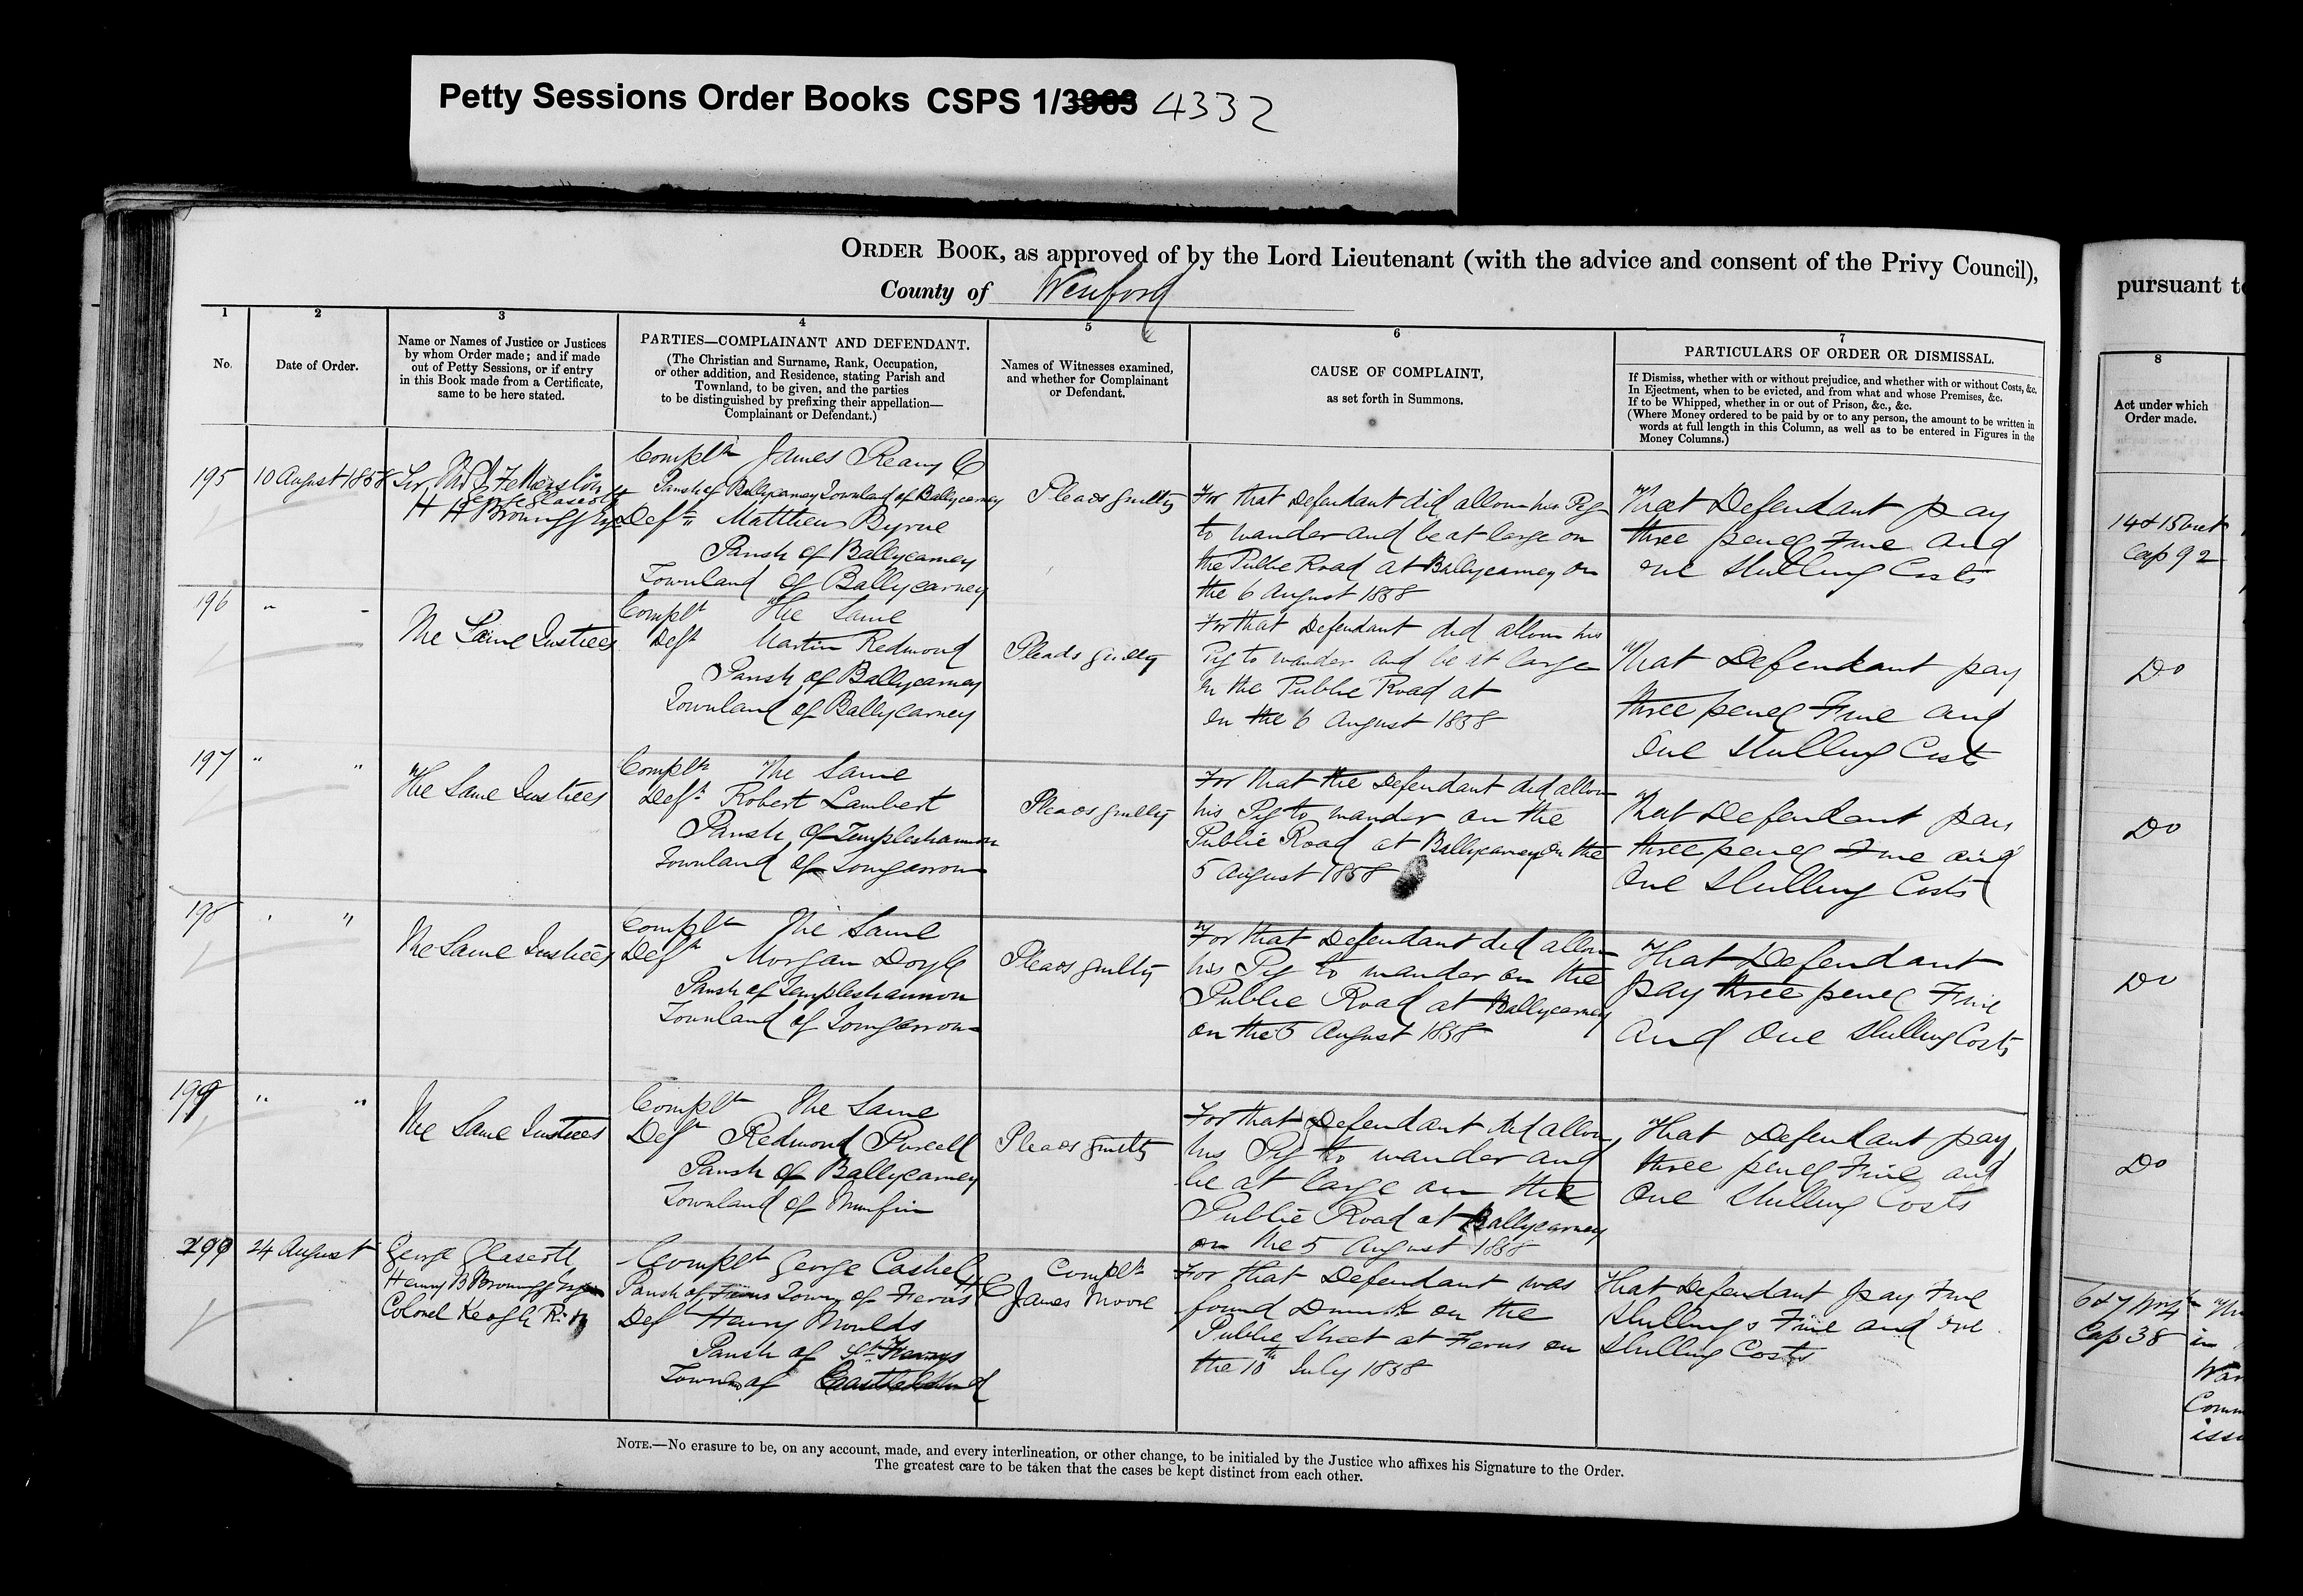 Petty Sessions Order Books CSPS 1/3963 4332
ORDER BOOK, as approved of by the Lord Lieutenant (with the advice and consent of the Privy Council),
County of Wexford
pursuant to
1
No.
2
Date of Order.
3
Name or Names of Justice or Justices
by whom Order made; and if made
out of Petty Sessions, or if entry
in this Book made from a Certificate,
same to be here stated.
4
PARTIES—COMPLAINANT AND DEFENDANT.
(The Christian and Surname, Rank, Occupation,
or other addition, and Residence, stating Parish and
Townland, to be given, and the parties
to be distinguished by prefixing their appellation—
Complainant or Defendant.)
5
Names of Witnesses examined,
and whether for Complainant
or Defendant.
6
CAUSE OF COMPLAINT,
as set forth in Summons.
7
PARTICULARS OF ORDER OR DISMISSAL.
If Dismiss, whether with or without prejudice, and whether with or without Costs, &c.
In Ejectment, when to be evicted, and from what and whose Premises, &c.
If to be Whipped, whether in or out of Prison, &c., &c.
(Where Money ordered to be paid by or to any person, the amount to be written in
words at full length in this Column, as well as to be entered in Figures in the
Money Columns.)
8
Act under which
Order made.
195
10 August 1858
George Glascott
Complt James Reany C
Parish of Ballycarney Townland of Ballycarney
Deft Matthew Byrne
Parish of Ballycarney
Townland of Ballycarney
Pleads guilty
For that Defendant did allow his Pig
to wander and be at large on
the Public Road at Ballycarney on
the 6 August 1858
That Defendant pay
three pence Fine and
one Shilling Costs
14 & 15 Vict
Cap 92
196
" "
The Same Justices
Complt The Same
Deft Martin Redmond
Parish of Ballycarney
Townland of Ballycarney
Pleads guilty
For that Defendant did allow his
Pig to wander and be at large
on the Public Road at
on the 6 August 1858
That Defendant pay
three pence Fine and
One Shilling Costs
Do
197
" "
The Same Justices
Complt The Same
Deft Robert Lambert
Parish of Templeshannon
Townland of
Pleads guilty
For that the Defendant did allow
his Pig to wander on the
Public Road at Ballycarney on the
5 August 1858
That Defendant pay
three pence Fine and
One Shilling Costs
Do
198
" "
The Same Justices
Complt The Same
Deft Morgan Doyle
Parish of Templeshannon
Townland of
Pleads guilty
For that Defendant did allow
his Pig to wander on the
Public Road at Ballycarney
on the 5 August 1858
That Defendant
pay three pence Fine
and One Shilling Costs
Do
199
" "
The Same Justices
Complt The Same
Deft Redmond Purcell
Parish of Ballycarney
Townland of Munfin
Pleads guilty
For that Defendant did allow
his Pig to wander and
be at large on the
Public Road at Ballycarney
on the 5 August 1858
That Defendant pay
three pence Fine and
One Shilling Costs
Do
200
24 August
George Glascott
Colonel Keogh R.M
Complt George Cashel
Parish of Ferns Town of Ferns
Deft Henry Moulds
Parish of
Town of
Complt
James Moore
For that Defendant was
found Drunk on the
Public Street at Ferns on
the 10th July 1858
That Defendant pay Five
Shillings Fine and one
Shilling Costs
6 & 7 Wm 4
Cap 38
in
NOTE.—No erasure to be, on any account, made, and every interlineation, or other change, to be initialed by the Justice who affixes his Signature to the Order.
The greatest care to be taken that the cases be kept distinct from each other.